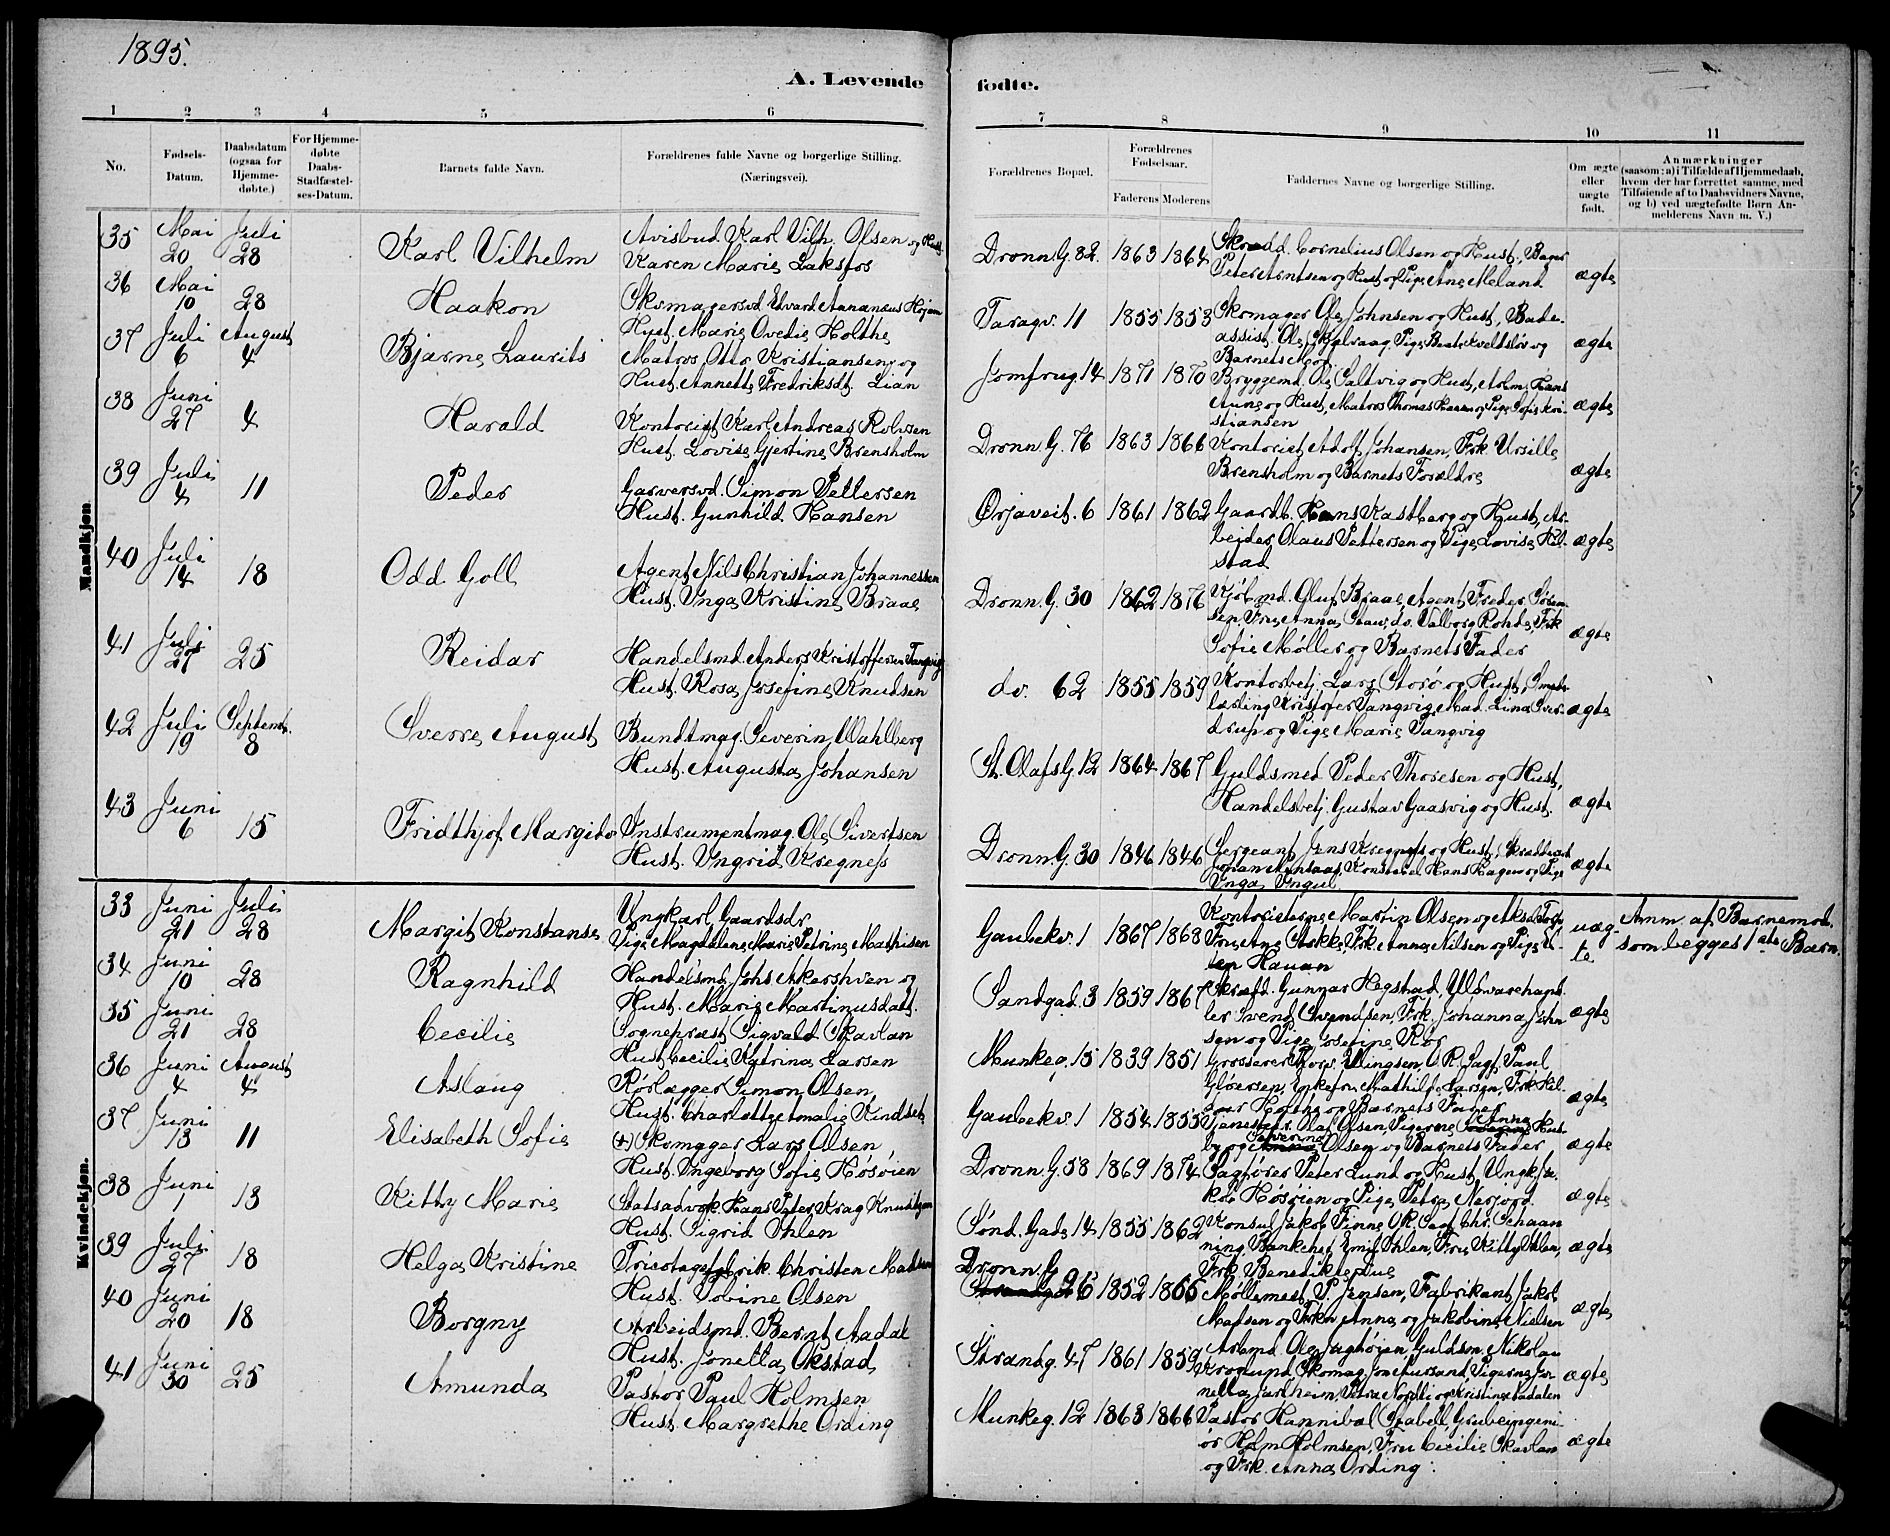 1895.
A. Levende
1 2 3 4 5 6
No.
Fødsels-
Datum.
Daabsdatum
(ogsaa for
Hjemme-
døbte.)
For Hjemme-
døbte
Daabs-
Stadfæstel-
ses-Datum.
Barnets fulde Navn.
Forældrenes fulde Navne og borgerlige Stilling.
(Næringsvei).
Mandkjøn
35 Mai 20 Juli 28 Karl Vilhelm
Avisbud Karl Vilh. Olsen og Hust.
Karen Marie Laksfos
36 Mai 10 28 Haakon
Skomagersvd. Edvard Ananæus
Hust. Marie Ovedie Holthe
37 Juli 6 August 4 Bjarne Laurits
Matros Otto Kristiansen og
Hust. Annette Fredriksdt. Lian
38 Juni 27 4 Harald
Kontorist Karl Andreas Rolvsen
Hust. Lovise Gjertine Brensholm
39 Juli 4 11 Peder
Garversvd. Simon Pettersen
Hust. Gunhild Hansen
40 Juli 14 18 Odd Goll
Agent Nils Christian Johannessen
Hust. Inga Kristine Braae
41 Juli 27 25 Reidar
Handelsmd. Anders Kristoffersen Tangvig
Hust. Rosa Josefine Knudsen
42 Juli 19 Septemb. 8 Sverre August
Bundtmag. Severin Wahlberg
Hust. Augusta Johansen
43 Juni 6 15 Fridthjof Margido
Instrumentmag. Ole Sivertsen
Hust. Ingrid Kregnes
Kvindekjøn.
33 Juni 21 Juli 28 Margit Konstanse
Ungkarl, Gaardsdr.
Pige Magdalene Marie Petrine Mathisen
34 Juni 10 28 Ragnhild
Handelsmd. Johs. Akershven og
Hust. Marie Martinusdatt.
35 Juni 21 28 Cecilie
Sognepræst Sigvald Skavlan
Hust. Cecilie Katrina Larsen
36 Juni 4 August 4 Aslaug
Rørlægger Simon Olsen,
Hust. Charlotte Amalie Kindseth
37 Juni 13 11 Elisabeth Sofie
(+) Skomager Lars Olsen
Hust. Ingeborg Sofie Høsøien
38 Juni 1 13 Kitty Marie
Statsadvok. Hans Peter Krag Knudtzon
Hust. Sigrid Ihlen
39 Juli 27 18 Helga Kristine
Tricotagefabrik. Christen Madsen
Hust. Tobine Olsen
40 Juni 20 18 Borgny
Arbeidsmd. Bernt Aadal
Hust. Jonetta Okstad
41 Juni 30 25 Amunda
Pastor Paul Holmsen
Hust. Margrethe Ording
fødte.
7 8 9 10 11
Forældrenes Bopæl.
Forældrenes
Fødselsaar.
Faderens Moderens
Faddernes Navne og borgerlige Stilling.
Om ægte
eller
uægte
født.
Anmærkninger
(saasom: a) i Tilfælde af Hjemmedaab,
hvem der har forrettet samme, med
Tilføiende af to Daabsvidners Navne,
og b) ved uægtefødte Børn An-
melderens Navn m. V.)
Dronn.G. 82 1863 1864
Skrædd. Cornelius Olsen og Hust, Bager
Peter Arntsen og Hust og Pige Ane Meland
ægte
1855 1853
Skomager Ole Johnsen og Hust, Bade-
assist. Ole Skjelvaag, Pige
Barnets Mor
ægte
Jomfrug. 14 1871 1870
Bryggemd. Ole Saltvig og Hust,
Aune og Hust, Matros Thomas Hansen og Pige Sofie Kri-
stiansen
ægte
Dronn.G. 76 1863 1866
Kontorist Adolf Johansen, Frk. Ursille
Brensholm og Barnets Forældre
ægte
Ørjaveit. 6 1861 1862
Gaardb. Hans Kastberg og Hust, Ar-
beider Olaus Pettersen og Pige Lovise Hel-
stad
ægte
Dronn.G. 30 1862 1876
Kjøbmd. Oluf Braae, Agent Feder. Søren-
sen, Fru Anna Staw, do. Valborg Rohde, Frk
Sofie Møller og Barnets Fader
ægte
do. 62 1855 1859
Kontorbetj. Lars Storø og Hust, Smede-
lærling Kristofer Tangvig, Mad. Lina Sver-
drup og Pige Marie Tangvig
ægte
St. Olafs G. 12 1864 1867
Guldsmed Peder Thoresen og Hust,
Handelsbetj. Gustav Gaasvig og Hust.
ægte
Dronn.G. 30 1846 1846
Sergeant Jens Kregnes og Hust,
Konstabel Hans Hagen og Pige
Inga Yngul
ægte
Gaubekv. 1 1867 1868
Kontoristerne Martin Olsen og
Fru Ane Aske, Frk. Anna Nilsen og Pige El-
len Hauan
uæg-
te
Anm. af Barnemod.
som begges 1ste Barn.
Sandgad. 3 1859 1867
Skrædd. Gunnar Hegstad, Uldvarehand-
ler Svend Svendsen, Frk. Johanna John-
sen og Pige Josefine Roe
ægte
Munkeg. 15 1839 1851
Grosserer Ellingsen, O.R.Sagf. Paul
Gløersen, Enkefru Mathilde Larsen, Frk Hel-
Holthe og Barnets Fader
ægte
Gaubekv. 1 1854 1855
Tjenestgr. Olaf Olsen, Pigerne Anna
by og Severine Olsen og Barnets Fader
ægte
Dronn.G. 58 1869 1874
Sagfører Peter Lund og Hust, Ungk. Ja-
kob Høsøien og Pige Petra Nerjord
ægte
Sønd. Gade 14 1855 1862
Konsul Jakob Finne, OR. Sagf. Chr. Schaan-
ning, Bankchef Emil Ihlen, Fru Kitty Ihlen,
Frk. Benedikte Due
ægte
Dronn.G
26 1852 1855
Møllemest. P. Jensen, Fabrikant Jakob
Madsen og Frkn Anne og Jakobine Nielsen
ægte
Strandg. 47 1861 1859
Arbmd. Ole Jaghøien, Guldsm. Nikolai
Kroglund, Skomag. Jon Aursand, Pigerne Jo-
netta Jarlheim, Petra Nordli og Kristine Aadalen
ægte
Munkeg. 12 1863 1866
Pastor Hannibal Stabell, Grubeingeni-
ør Holm Holmsen, Fru Cecilie Skavlan
og Frk. Anna Ording.
ægte